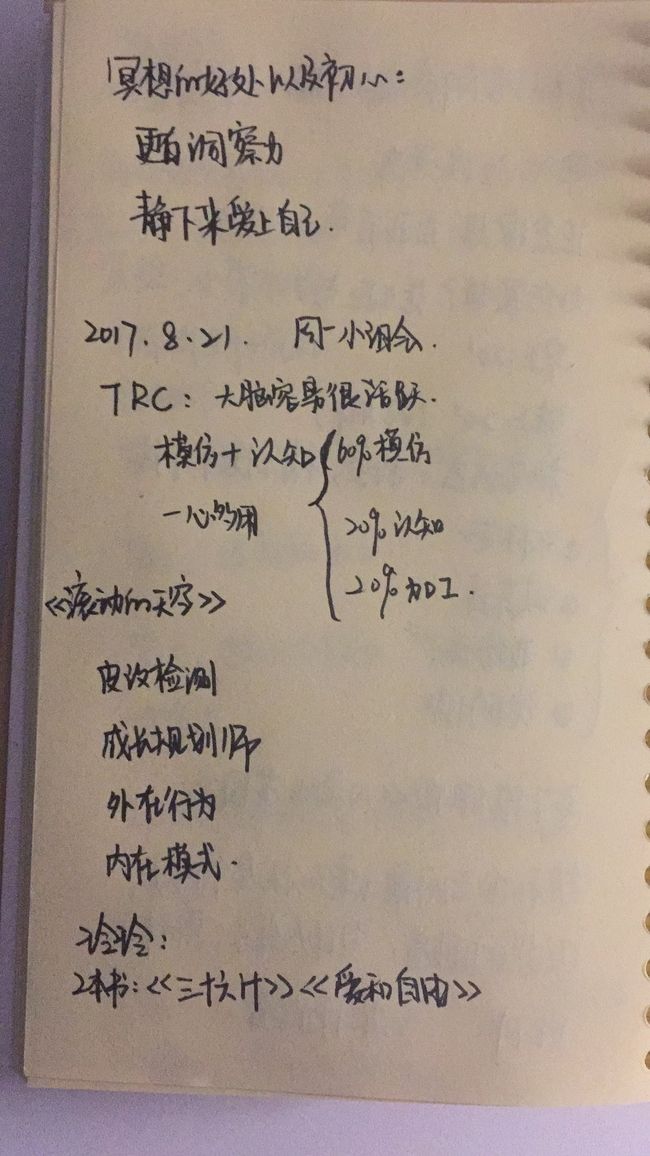 冥想的好处以及初心:
更有洞察力
静下来爱上自己.
2017.8.21. 周一小组会.
TRC: 大脑容易很活跃.
模仿+认知 { 60%模仿
一心多用 20%认知
20%加工.
《滚动的天空》
皮纹检测
成长规划师
外在行为
内在模式.
玲玲:
2本书:《三十六计》《爱和自由》